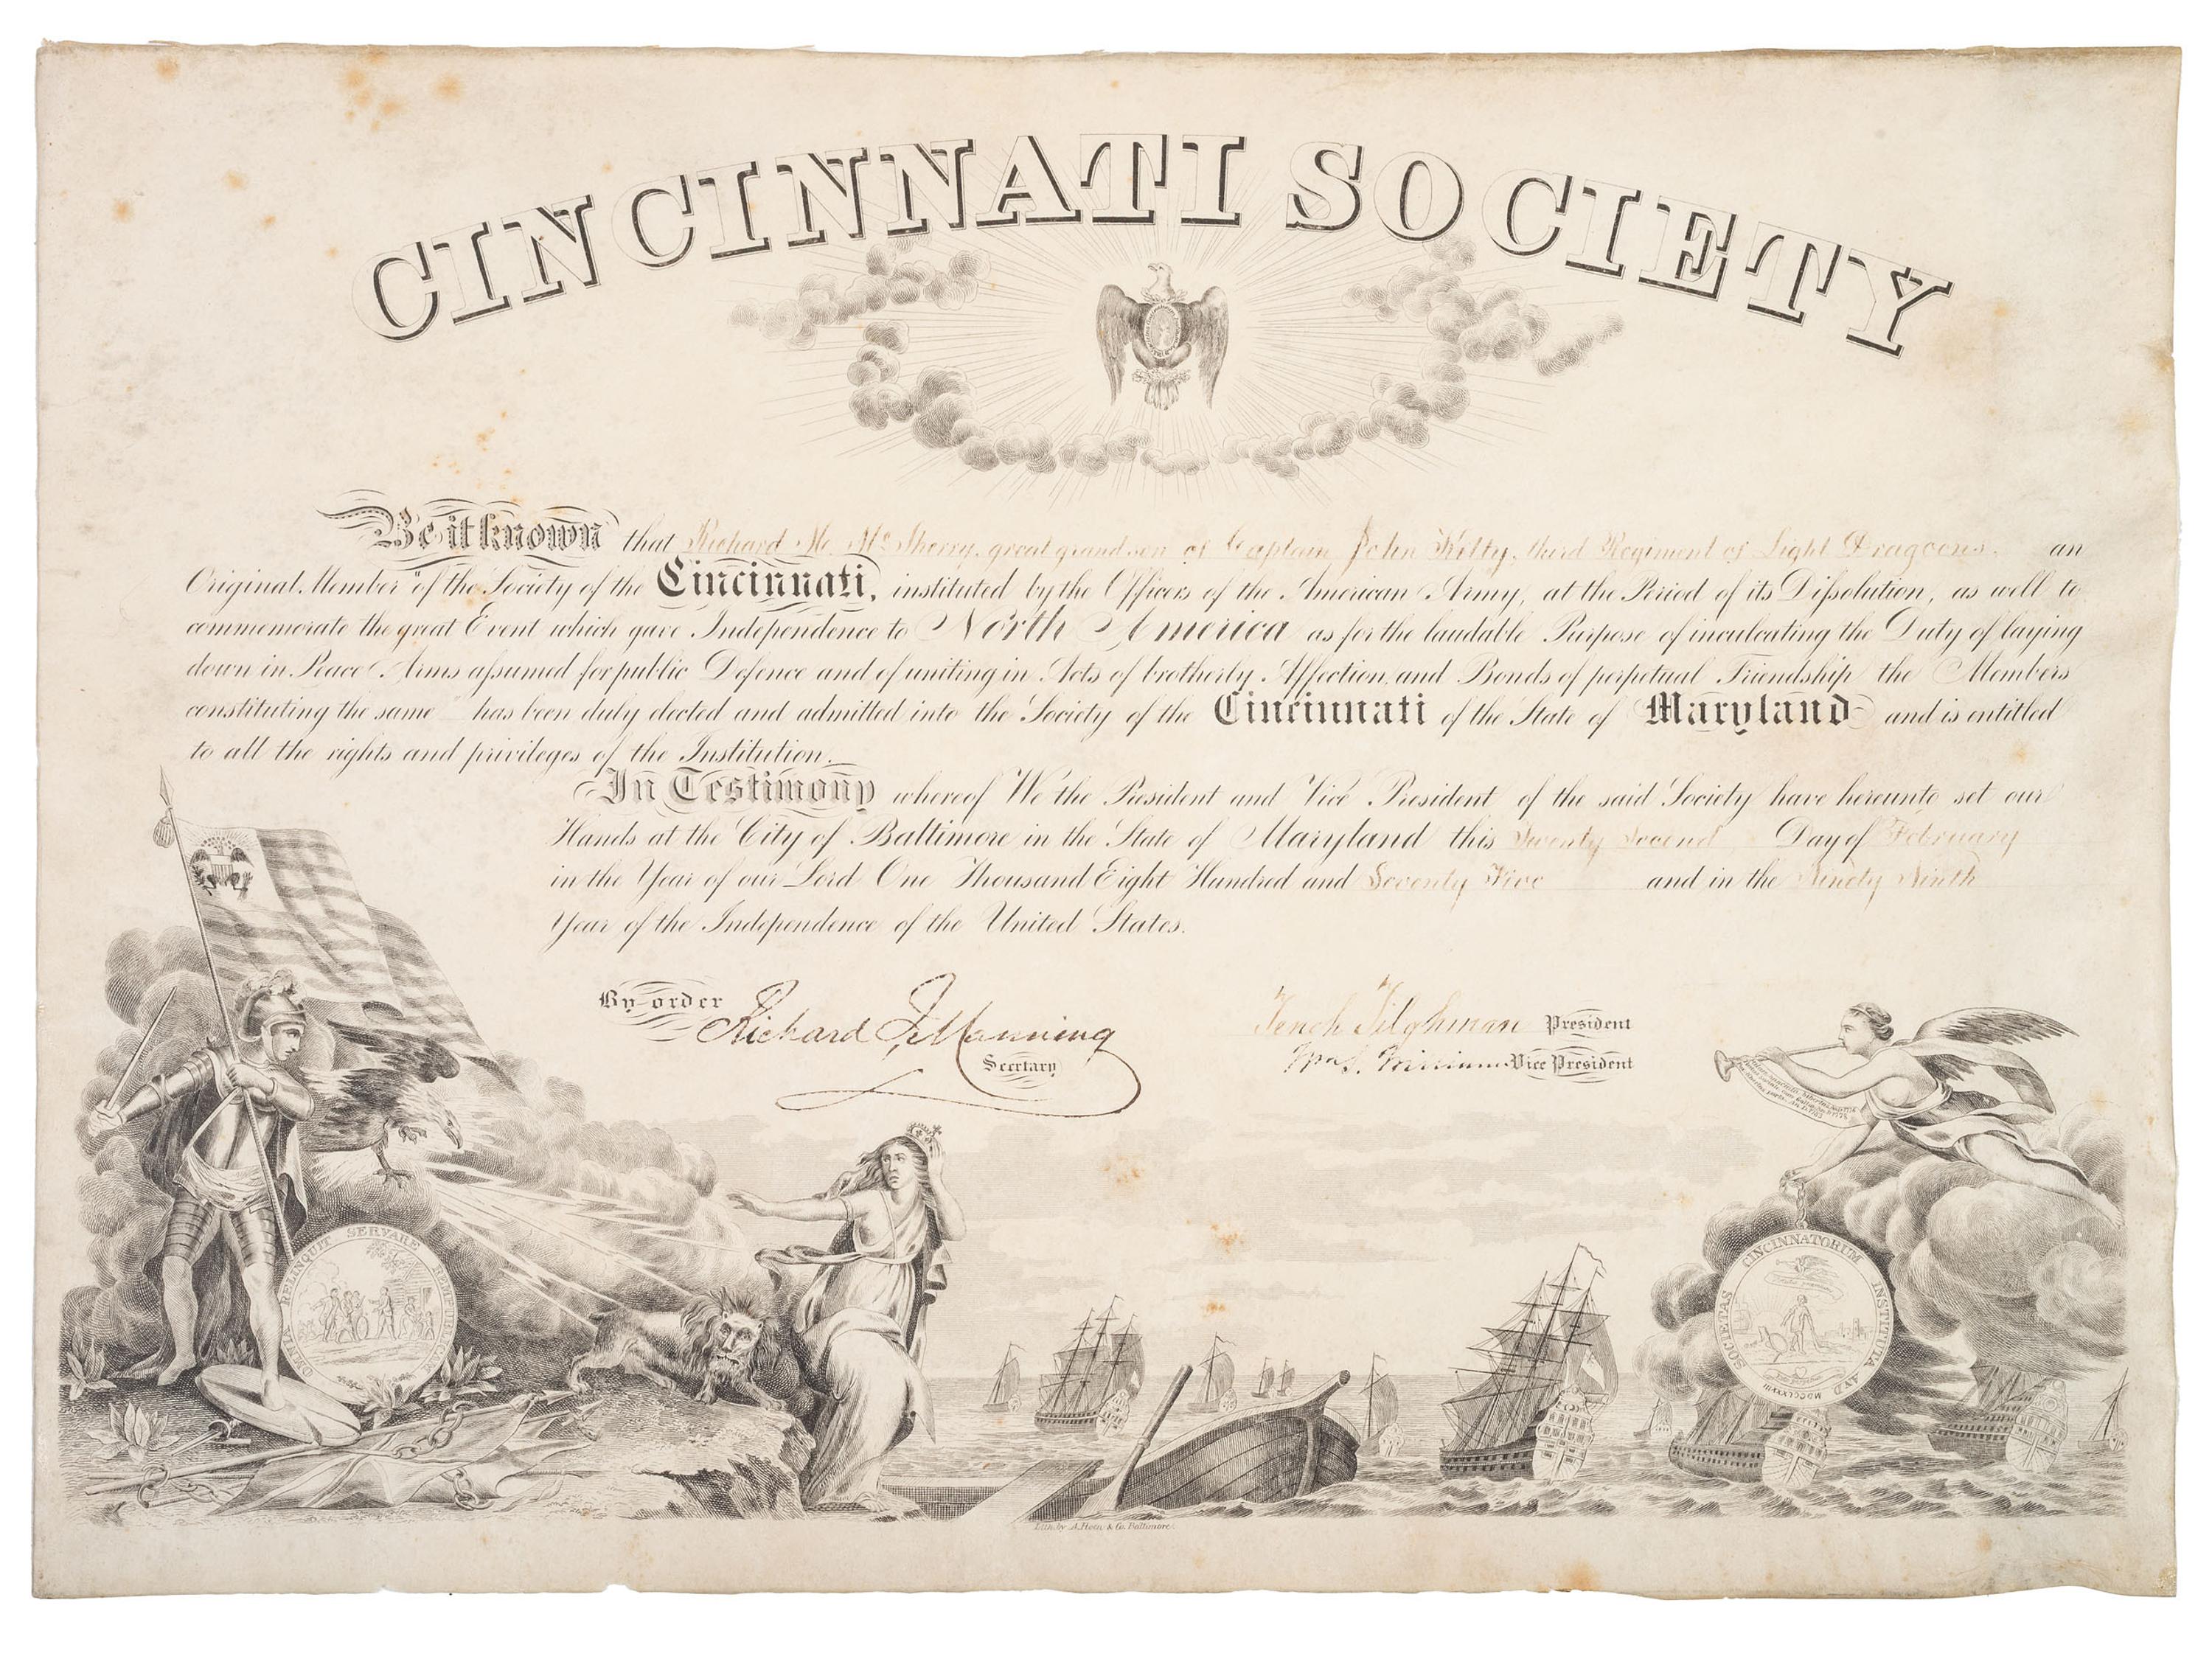 CINCINNATI SOCIETY
Be it known that Richard M. McSherry, great grandson of Captain John Kilty, third Regiment of Light Dragoons, an
Original Member "of the Society of the Cincinnati, instituted by the Officers of the American Army, at the Period of its Dissolution, as well to
commemorate the great Event which gave Independence to North America as for the laudable Purpose of inculcating the Duty of laying
down in Peace Arms assumed for public Defence and of uniting in Acts of brotherly Affection, and Bonds of perpetual Friendship the Members
constituting the same" has been duly elected and admitted into the Society of the Cincinnati of the State of Maryland and is entitled
to all the rights and privileges of the Institution.
In Testimony whereof We the President and Vice President of the said Society have hereunto set our
Hands at the City of Baltimore in the State of Maryland this Twenty Second Day of February
in the Year of our Lord One Thousand Eight Hundred and Seventy Five and in the Ninety Ninth
Year of the Independence of the United States.
By order Richard I. Manning
Secretary
Tench Tilghman President
Vice President
OMNIA RELINQUIT SERVARE REMPUBLICAM
SOCIETAS CINCINNATORUM INSTITUTA A.D. MDCCLXXXIII
Lith. by A. Hoen & Co. Baltimore.